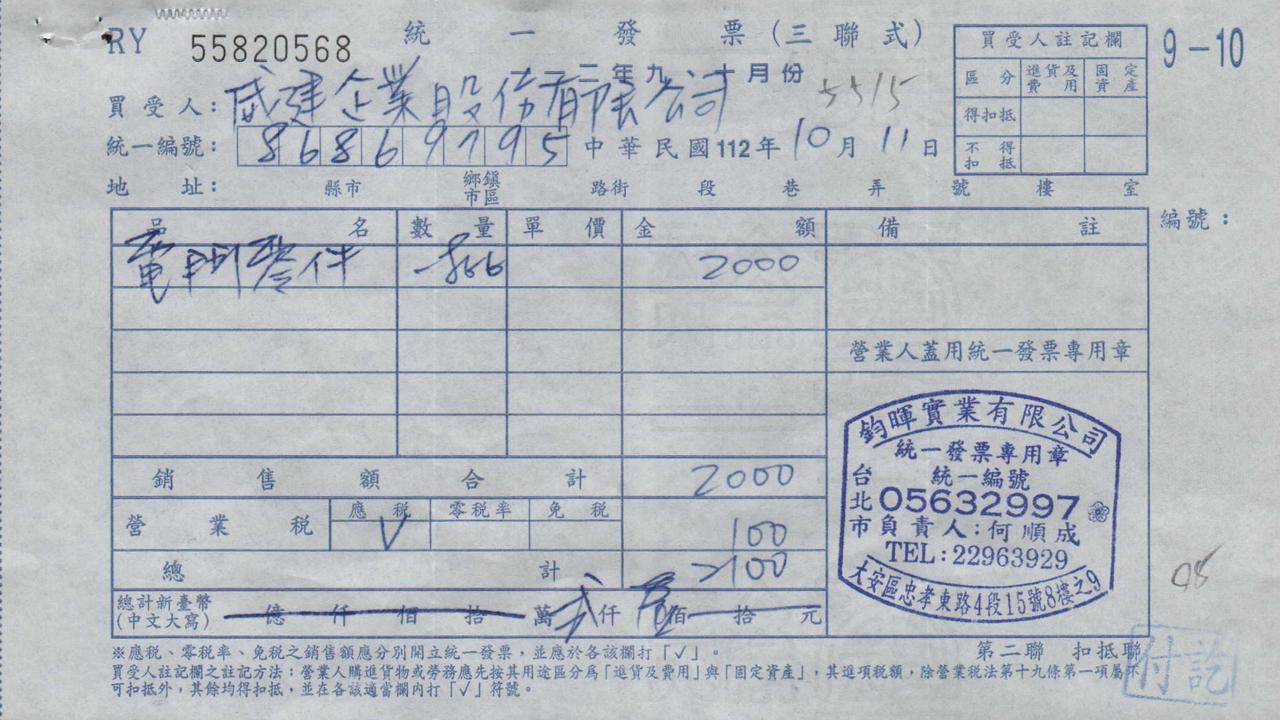 RY 55820568 統一發票(三聯式) 9-10
二年九、十月份 5515
買受人:威建企業股份有限公司
統一編號:86869795 中華民國112年10月11日
地址: 縣市 鄉鎮市區 路街 段 巷 弄 號 樓 室
買受人註記欄
區分 進貨及費用 固定資產
得扣抵
不得扣抵
品名 數量 單價 金額 備註 編號:
零件 2000
營業人蓋用統一發票專用章
銷售額合計 2000
應稅 零稅率 免稅
營業稅 V 100
總計 2100
總計新臺幣(中文大寫) 億仟佰拾萬貳仟壹佰拾元
鈞暉實業有限公司
統一發票專用章
統一編號
05632997
負責人:何順成
TEL:22963929
台北市
大安區忠孝東路4段15號8樓之9
08
※應稅、零稅率、免稅之銷售額應分別開立統一發票,並應於各該欄打「✓」。
第二聯 扣抵聯
買受人註記欄之註記方法:營業人購進貨物或勞務應先按其用途區分為「進貨及費用」與「固定資產」,其進項稅額,除營業稅法第十九條第一項屬不
可扣抵外,其餘均得扣抵,並在各該適當欄內打「✓」符號。
付訖